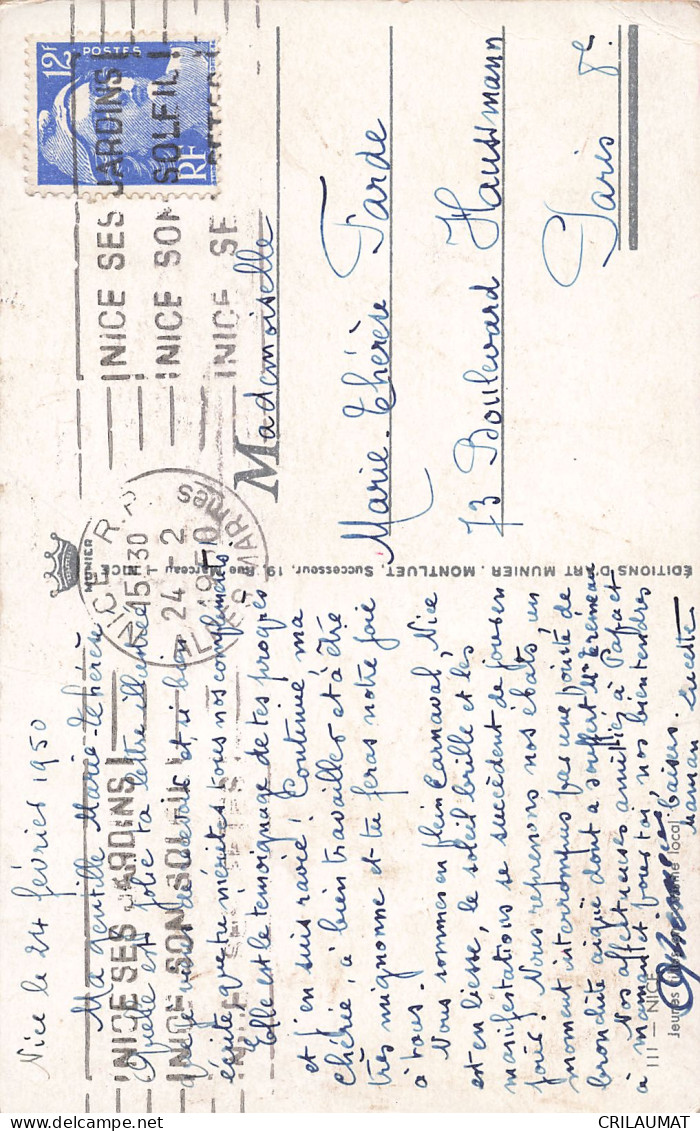 Nice le 24 février 1950
Ma gentille Marie-Thérèse
Quelle est jolie ta lettre illustrée
que je viens de recevoir et si bien
écrite, que tu mérites tous nos compliments.
Elle est le témoignage de tes progrès
et j'en suis ravie! Continue ma
chérie, à bien travailler et à être
très mignonne et tu feras notre joie
à tous.
Nous sommes en plein Carnaval, Nice
est en liesse, le soleil brille et les
manifestations se succèdent de jour en
jour! Nous reprenons nos ébats un
moment interrompus par une pointe de
bronchite aiguë dont a souffert Mr Trémeau
Nos affectueuses amitiés à Papa et
à maman et pour toi, nos bien tendres
baisers.
III — NICE
Jeunes
local
ÉDITIONS D'ART MUNIER, MONTLUET, Successeur, 19, Rue Marceau, NICE
MUNIER
Mademoiselle
Marie-Thérèse Tarde
73 Boulevard Haussmann
Paris 8e
12F
POSTES
RF
NICE SES JARDINS!
NICE SON SOLEIL!
NICE SES
NICE R.P
15H30
24-2
1950
ALPES MARmes
NICE SES JARDINS!
NICE SON SOLEIL!
NICE SES FÊTES
CRILAUMAT